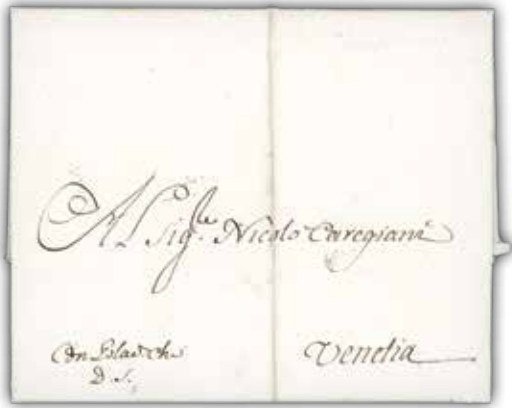 Al Sig.le Nicolo Caregiani
Venetia
Con
D. S.